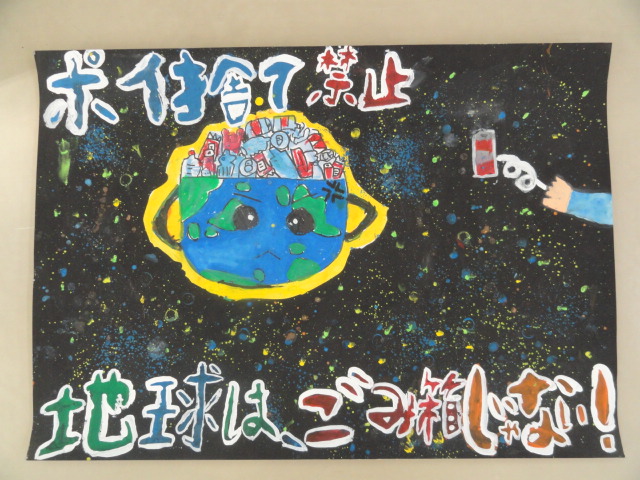 ポイ捨て禁止
地球は、ごみ箱じゃない!!